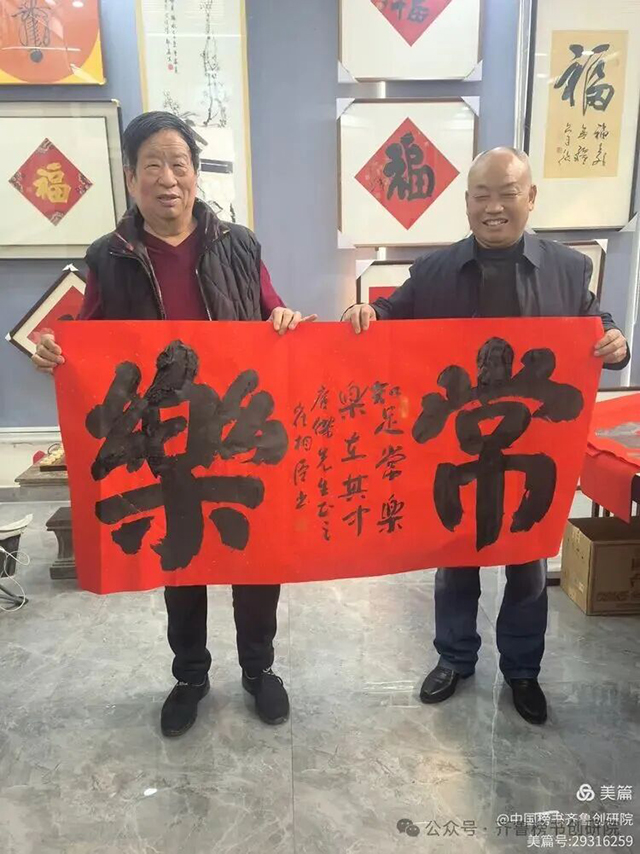 福
福
福
福
常
知足常樂
樂在其中
先生正之
書
樂
美篇
@中国榜书齐鲁创研院
公众号·齐鲁榜书创研院
美篇号:29316259